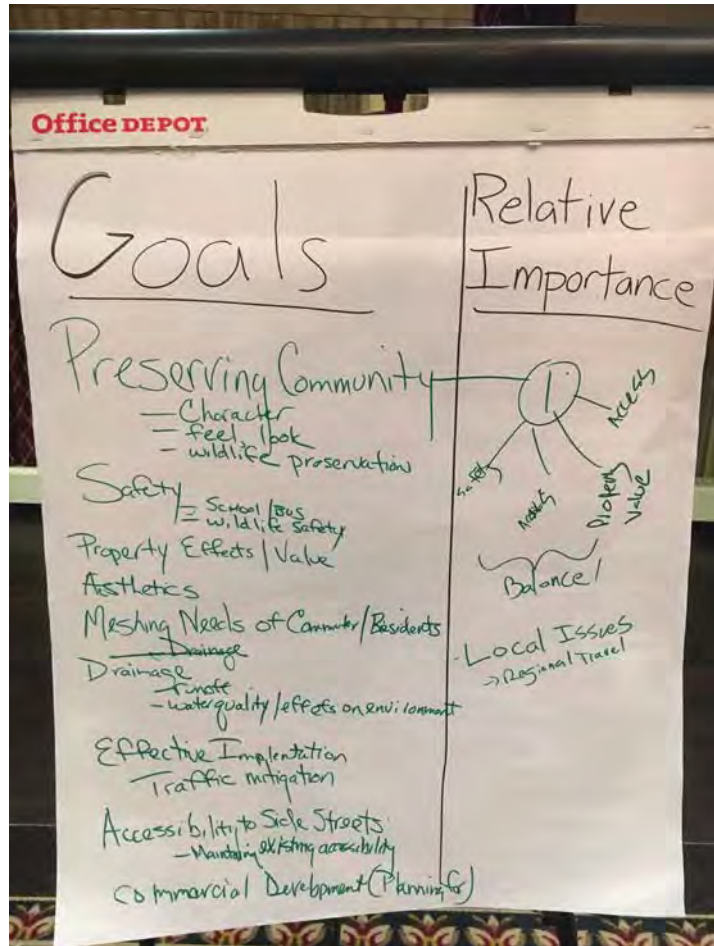 Office DEPOT
Goals
Preserving Community
— Character
— feel, look
- wildlife preservation
Safety
- School/Bus
- wildlife safety
Property Effects/Value
Aesthetics
Meshing Needs of Commuter/Residents
Drainage
Drainage
- runoff
- water quality/effects on environment
Effective Implentation
Traffic mitigation
Accessibility to Side Streets
- Maintaining existing accessibility
Commercial Development (Planning for)
Relative
Importance
1
Access
Safety
Property
Value
Balance
- Local Issues
-> Regional Travel